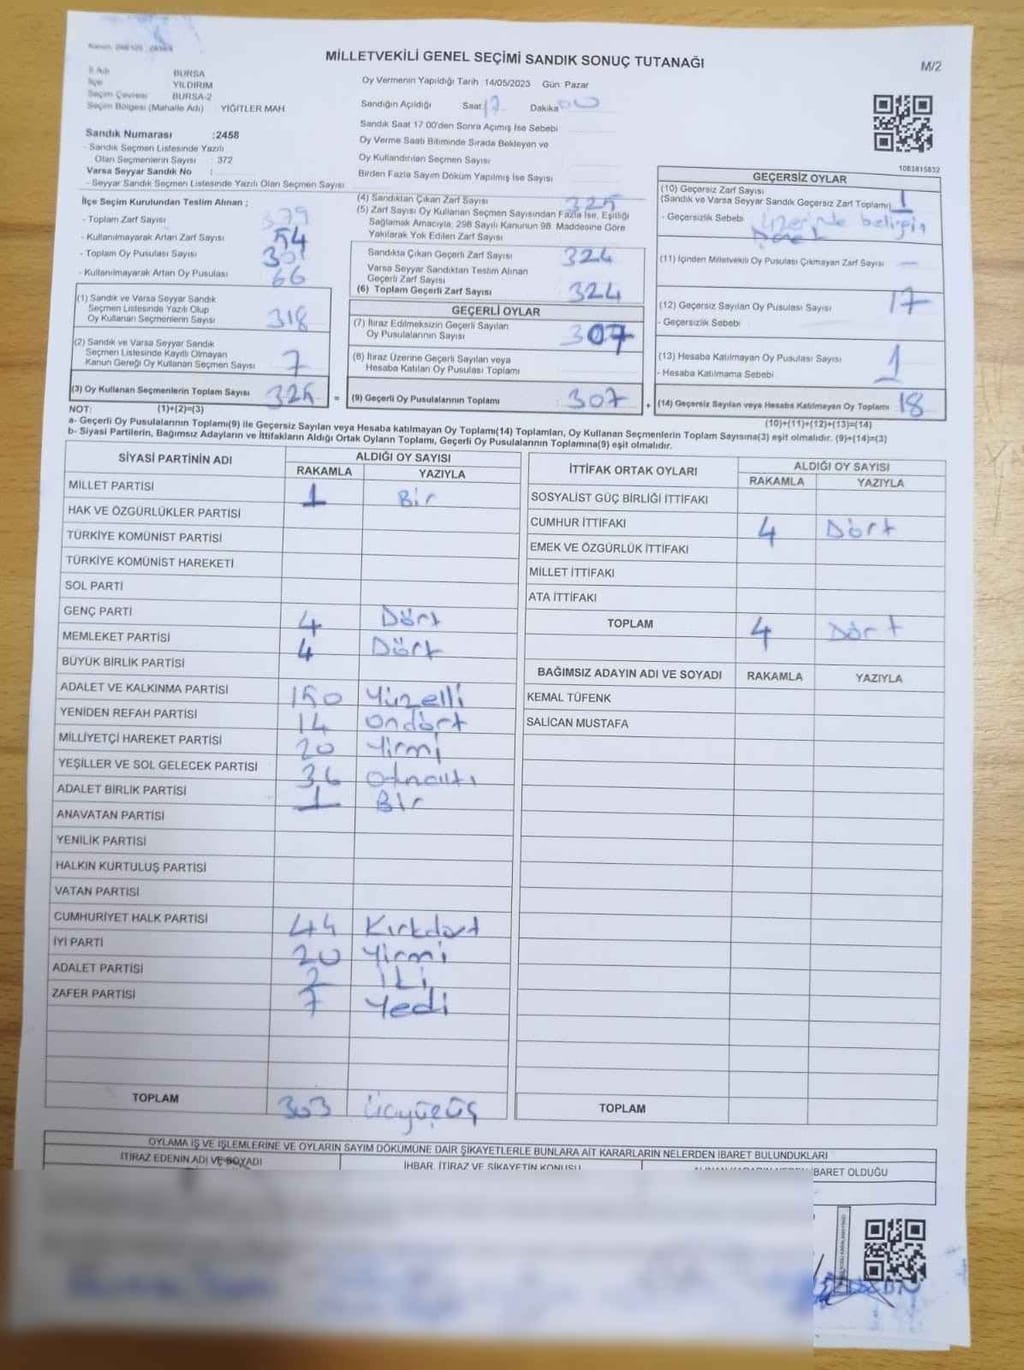 MİLLETVEKİLİ GENEL SEÇİMİ SANDIK SONUÇ TUTANAĞI
M/2
İl Adı BURSA
İlçe YILDIRIM
Seçim Çevresi BURSA-2
Seçim Bölgesi (Mahalle Adı) YİĞİTLER MAH
Sandık Numarası :2458
- Sandık Seçmen Listesinde Yazılı
Olan Seçmenlerin Sayısı : 372
Varsa Seyyar Sandık No :
- Seyyar Sandık Seçmen Listesinde Yazılı Olan Seçmen Sayısı
Oy Vermenin Yapıldığı Tarih 14/05/2023 Gün Pazar
Sandığın Açıldığı Saat 17 Dakika 00
Sandık Saat 17:00'den Sonra Açımış İse Sebebi
Oy Verme Saati Bitiminde Sırada Bekleyen ve
Oy Kullandırılan Seçmen Sayısı
Birden Fazla Sayım Döküm Yapılmış İse Sayısı
1083815832
İlçe Seçim Kurulundan Teslim Alınan ;
- Toplam Zarf Sayısı 379
- Kullanılmayarak Artan Zarf Sayısı 54
- Toplam Oy Pusulası Sayısı
- Kullanılmayarak Artan Oy Pusulası 66
(1) Sandık ve Varsa Seyyar Sandık
Seçmen Listesinde Yazılı Olup
Oy Kullanan Seçmenlerin Sayısı 318
(2) Sandık ve Varsa Seyyar Sandık
Seçmen Listesinde Kayıtlı Olmayan
Kanun Gereği Oy Kullanan Seçmen Sayısı 7
(3) Oy Kullanan Seçmenlerin Toplam Sayısı 325 =
(4) Sandıktan Çıkan Zarf Sayısı 325
(5) Zarf Sayısı Oy Kullanan Seçmen Sayısından Fazla İse, Eşitliği
Sağlamak Amacıyla, 298 Sayılı Kanunun 98. Maddesine Göre
Yakılarak Yok Edilen Zarf Sayısı
Sandıkta Çıkan Geçerli Zarf Sayısı 324
Varsa Seyyar Sandıktan Teslim Alınan
Geçerli Zarf Sayısı
(6) Toplam Geçerli Zarf Sayısı 324
GEÇERLİ OYLAR
(7) İtiraz Edilmeksizin Geçerli Sayılan
Oy Pusulalarının Sayısı 307
(8) İtiraz Üzerine Geçerli Sayılan veya
Hesaba Katılan Oy Pusulası Toplamı
(9) Geçerli Oy Pusulalarının Toplamı 307 +
GEÇERSİZ OYLAR
(10) Geçersiz Zarf Sayısı
(Sandık ve Varsa Seyyar Sandık Geçersiz Zarf Toplamı) 1
- Geçersizlik Sebebi üzerinde belirgin
(11) İçinden Milletvekili Oy Pusulası Çıkmayan Zarf Sayısı —
(12) Geçersiz Sayılan Oy Pusulası Sayısı 17
- Geçersizlik Sebebi
(13) Hesaba Katılmayan Oy Pusulası Sayısı 1
- Hesaba Katılmama Sebebi
(14) Geçersiz Sayılan veya Hesaba Katılmayan Oy Toplamı 18
NOT: (1)+(2)=(3)
(10)+(11)+(12)+(13)=(14)
a- Geçerli Oy Pusulalarının Toplamı(9) ile Geçersiz Sayılan veya Hesaba katılmayan Oy Toplamı(14) Toplamları, Oy Kullanan Seçmenlerin Toplam Sayısına(3) eşit olmalıdır. (9)+(14)=(3)
b- Siyasi Partilerin, Bağımsız Adayların ve İttifakların Aldığı Ortak Oyların Toplamı, Geçerli Oy Pusulalarının Toplamına(9) eşit olmalıdır.
SİYASİ PARTİNİN ADI ALDIĞI OY SAYISI
RAKAMLA YAZIYLA
MİLLET PARTİSİ 1 Bir
HAK VE ÖZGÜRLÜKLER PARTİSİ
TÜRKİYE KOMÜNİST PARTİSİ
TÜRKİYE KOMÜNİST HAREKETİ
SOL PARTİ
GENÇ PARTİ 4 Dört
MEMLEKET PARTİSİ 4 Dört
BÜYÜK BİRLİK PARTİSİ
ADALET VE KALKINMA PARTİSİ 150 Yüzelli
YENİDEN REFAH PARTİSİ 14 ondört
MİLLİYETÇİ HAREKET PARTİSİ 20 Yirmi
YEŞİLLER VE SOL GELECEK PARTİSİ 36 otuzaltı
ADALET BİRLİK PARTİSİ 1 Bir
ANAVATAN PARTİSİ
YENİLİK PARTİSİ
HALKIN KURTULUŞ PARTİSİ
VATAN PARTİSİ
CUMHURİYET HALK PARTİSİ 44 Kırkdört
İYİ PARTİ 20 Yirmi
ADALET PARTİSİ 2 İki
ZAFER PARTİSİ 7 Yedi
TOPLAM 303 Üçyüzüç
İTTİFAK ORTAK OYLARI ALDIĞI OY SAYISI
RAKAMLA YAZIYLA
SOSYALİST GÜÇ BİRLİĞİ İTTİFAKI
CUMHUR İTTİFAKI 4 Dört
EMEK VE ÖZGÜRLÜK İTTİFAKI
MİLLET İTTİFAKI
ATA İTTİFAKI
TOPLAM 4 Dört
BAĞIMSIZ ADAYIN ADI VE SOYADI RAKAMLA YAZIYLA
KEMAL TÜFENK
SALİCAN MUSTAFA
TOPLAM
OYLAMA İŞ VE İŞLEMLERİNE VE OYLARIN SAYIM DÖKÜMÜNE DAİR ŞİKAYETLERLE BUNLARA AİT KARARLARIN NELERDEN İBARET BULUNDUKLARI
İTİRAZ EDENİN ADI VE SOYADI
İHBAR, İTİRAZ VE ŞİKAYETİN KONUSU
BARET OLDUĞU